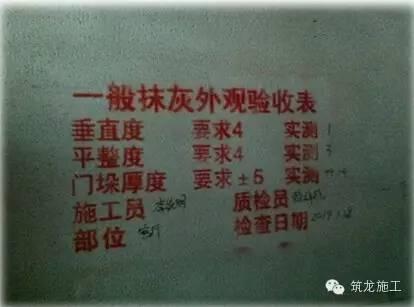 一般抹灰外观验收表
垂直度 要求4 实测1
平整度 要求4 实测3
门垛厚度 要求±5 实测
施工员 质检员
部位 检查日期
筑龙施工